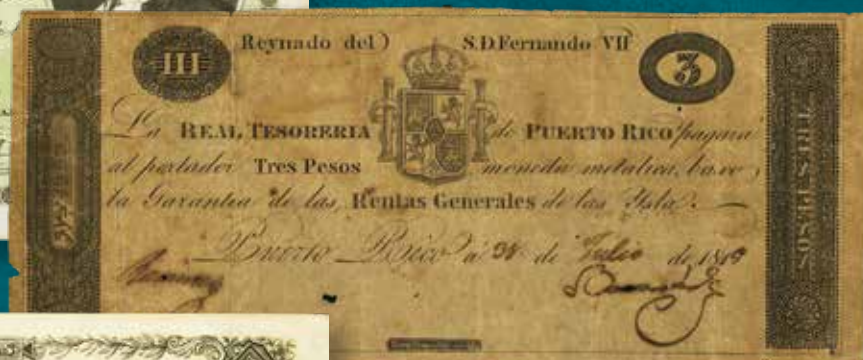 Reynado del S.D Fernando VII
III 3
La REAL TESORERIA de PUERTO RICO pagará
al portador Tres Pesos moneda metalica, baxo
la Garantia de las Rentas Generales de las Ysla.
Puerto Rico á de Julio de 1819
TRES PESOS